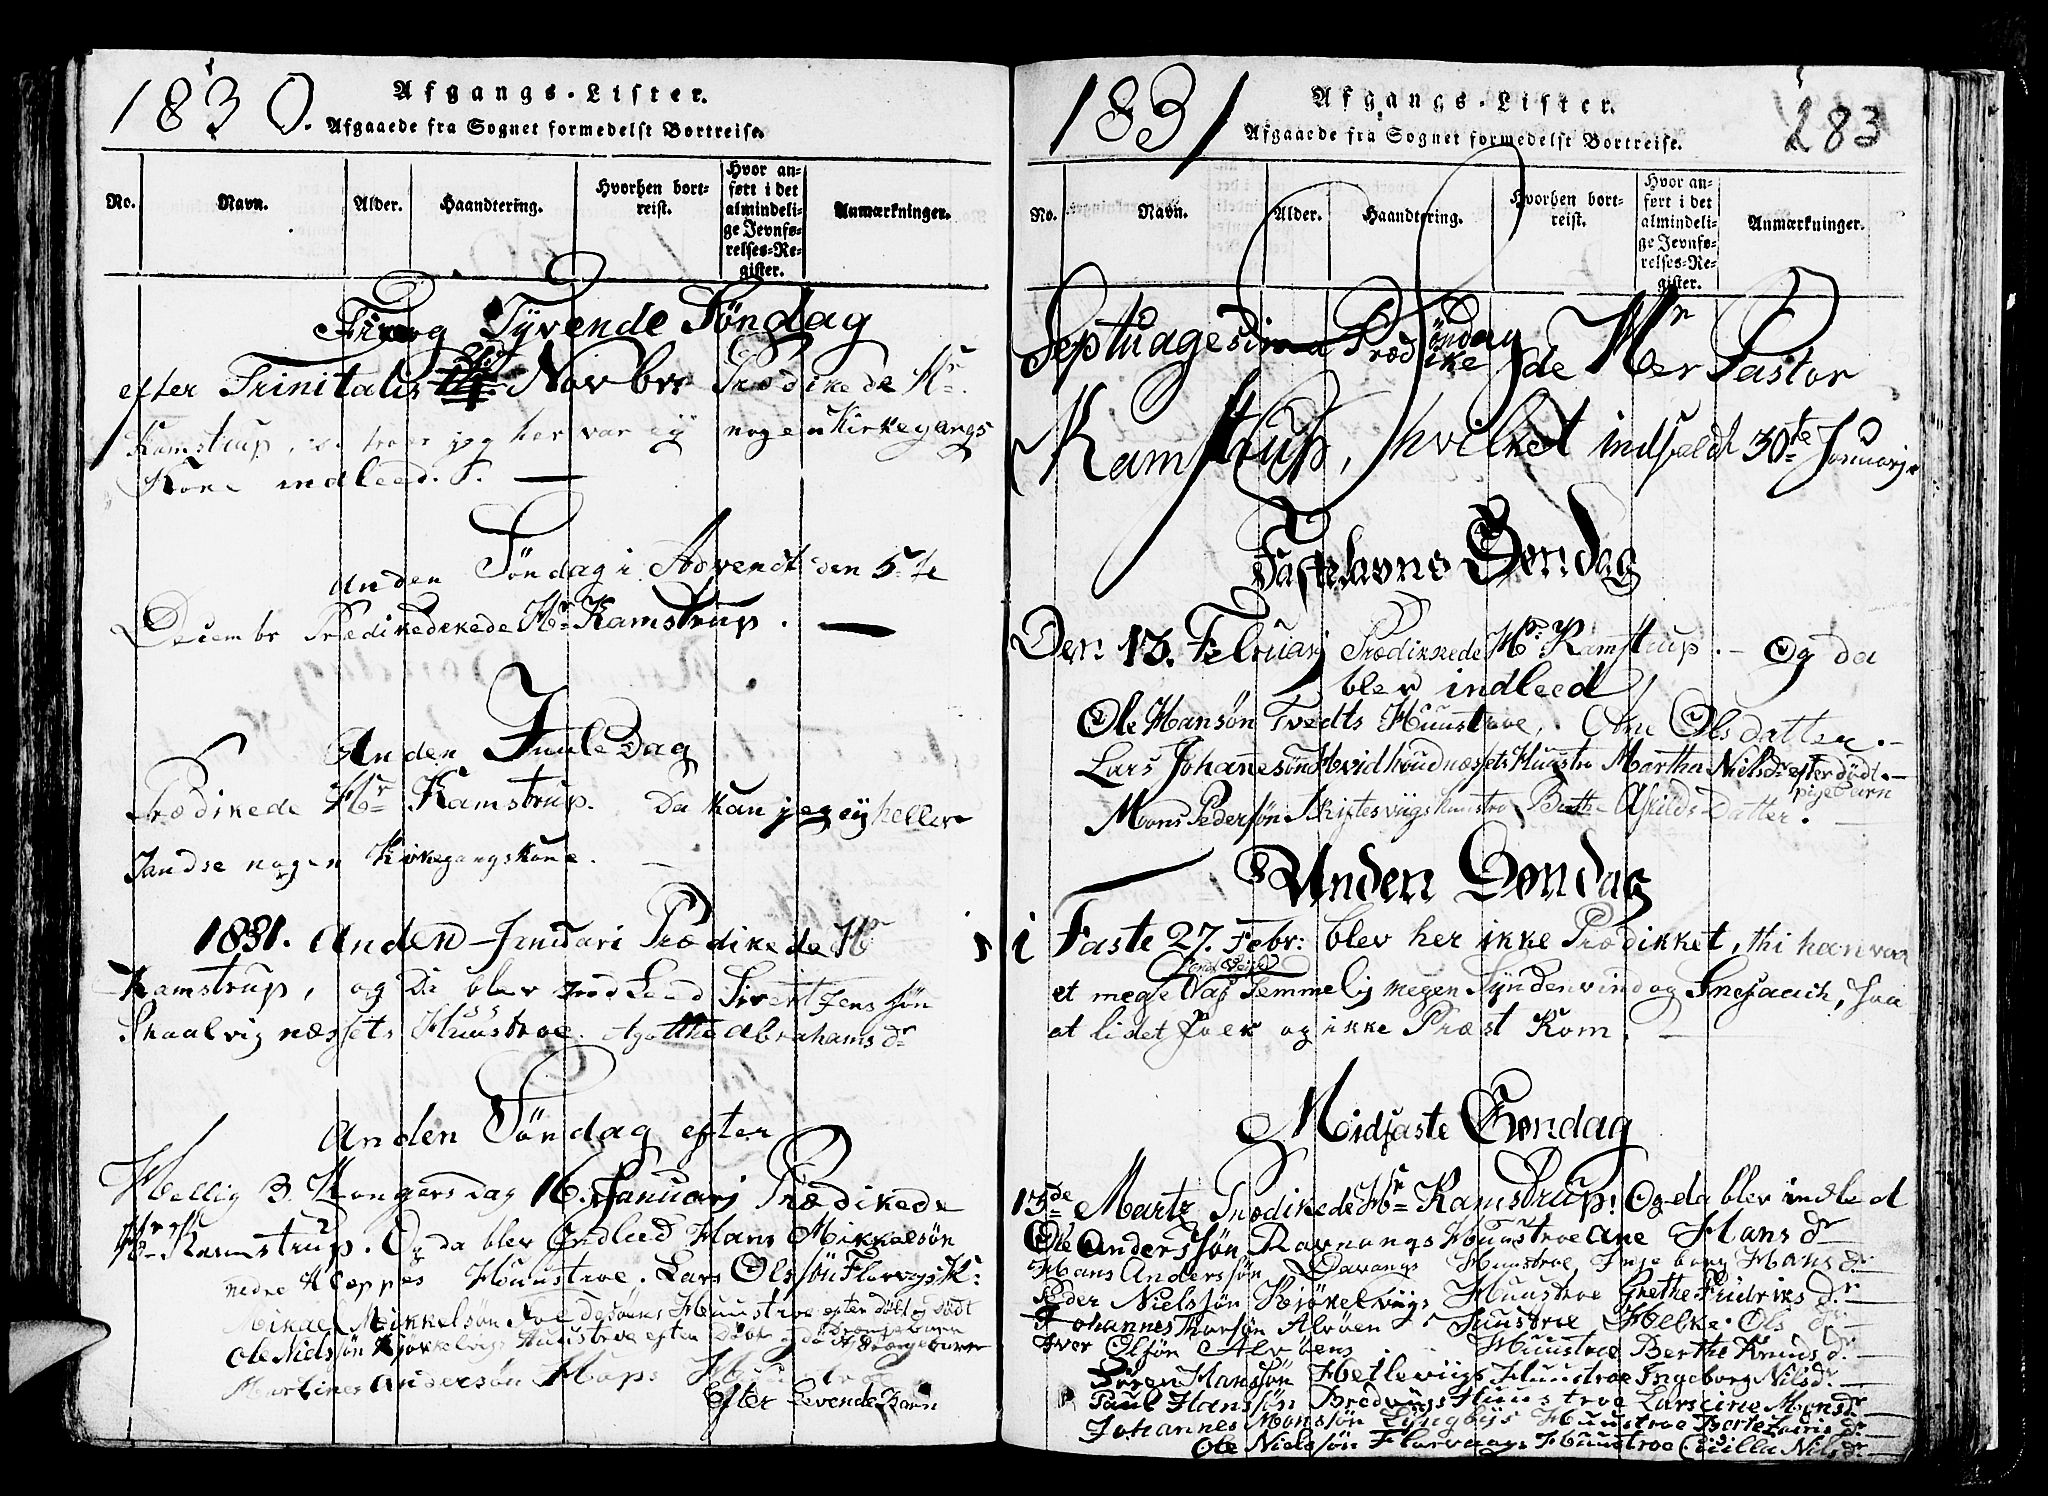 1830.
Afgangs-Lister.
Afgaaede fra Sognet formedelst Bortreise.
No.
Navn.
Alder.
Haandtering.
Hvorhen bort-
reist.
Hvor an-
ført i det
almindeli-
ge Jevnfø-
relses-Re-
gister.
Anmærkninger.
Tyvende Søndag
efter Trinitatis Novbr Prædikede Hr.
Kamstrup, jeg her var ey nogen Kirkegangs
Kone indleed. —
Anden Søndag i Advendt den 5te
Decembr Prædikedekede Hr Kamstrup. —
Anden Juule Dag
Prædikede Hr Kamstrup. Da kan jeg ey heller
Sandse nogen Kirkegangskone. —
1831. Anden Januari Prædikede Hr
Kamstrup, og Da blev Indleed Sivert Jens søn
Skaalvig næssets Huustroe. Agotthe Abrahams dr
Anden Søndag efter
Hellig 3. Konger Dag 16. Januarj Prædikede
Hr Kamstrup. Og da blev Indleed Hans Mikkelsøn
nedre Kleppes Huustroe. Lars Olssøn Florvogs K:
Mikael Mikkelsøn Huustroe efter Døbt
Ole Nielssøn Kjørkelviigs Huustroe efter Døbt og da
Martines Andersøn Hops Huustroe
Efter Levende Barn
1831
283
Afgangs-Lister.
Afgaaede fra Sognet formedelst Bortreise.
No.
Navn.
Alder.
Haandtering.
Hvorhen bort-
reist.
Hvor an-
ført i det
almindeli-
ge Jevnfø-
relses-Re-
gister.
Anmærkninger.
Septuagesima Søndag
Prædikede Hr Pastor
Kamstrup, hvilket indfaldt 30te Januarj
Fastelavns Søndag
Den 13. Februarj Prædikkede Hr Kamstrup. — Og da
blev indleed
Ole Hansøn Tvedts Huustroe, Ane Olsdatter. —
Lars Johanesøn Hvidhoudnæssets Huustro Martha Niels dr efter dødt —
pige Barn
Mons Pedersøn Skiftesviigs huustro Berthe Askilds Datter.
Anden Søndag
i Faste 27. Febr: blev her ikke Prædikket, thi han var
et meget Temmelig megen Syndenvind og Snefaach, saa
at lidet Folk og ikke Præst Kom. —
Midfaste Søndag
13de Martz Prædikede Hr Kamstrup! Og da blev indleed
Ole Anderssøn Ravnangs Huustroe Ane Hans dr
Hans Anderssøn Davangs Huustroe Ingeborg Hans dr —
Peder Nielssøn Kjørkelviigs Huustroe Grethe Fridriks dr —
Johannes Thorsøn Alvøen s Huustroe Helke Ols dr —
Iver Olsøn Alvøens Huustroe Berthe Knus dr —
Søren Hanssøn Hetleviigs Huustroe Ingeborg Nils dr —
Paul Hanssøn Bredviigs Huustroe Larseine Mons dr
Johannes Monssøn Lyngbyes Huustroe Berte Laris dr —
Ole Nielssøn Florvaags Huustroe Cicilla Nils dr —